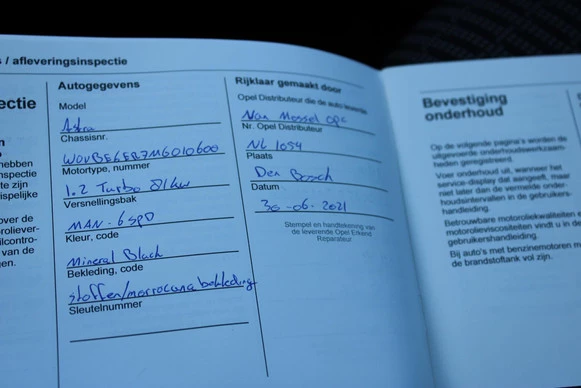 / afleveringsinspectie
ectie
hebben
nspectie
te zijn
ispelijke
over de
roliever-
ilcontro-
van de
gen.
Autogegevens
Model
Astra
Chassisnr.
Motortype, nummer
1.2 Turbo 81kw
Versnellingsbak
MAN - 6 SPD
Kleur, code
Mineral Black
Bekleding, code
stoffen/marrocana bekleding
Sleutelnummer
Rijklaar gemaakt door
Opel Distributeur die de auto leverde
Van Mossel OPC
Nr. Opel Distributeur
NL 1054
Plaats
Den Bosch
Datum
30-06-2021
Stempel en handtekening van
de leverende Opel Erkend
Reparateur
Bevestiging
onderhoud
Op de volgende pagina's worden de
uitgevoerde onderhoudswerkzaam-
heden geregistreerd.
Voer onderhoud uit, wanneer het
service-display dat aangeeft, maar
niet later dan de vermelde onder-
houdsintervallen in de gebruikers-
handleiding.
Betrouwbare motoroliekwaliteiten
motorolieviscositeiten vindt u in de
gebruikershandleiding.
Bij auto's met benzinemotoren m
de brandstoftank vol zijn.